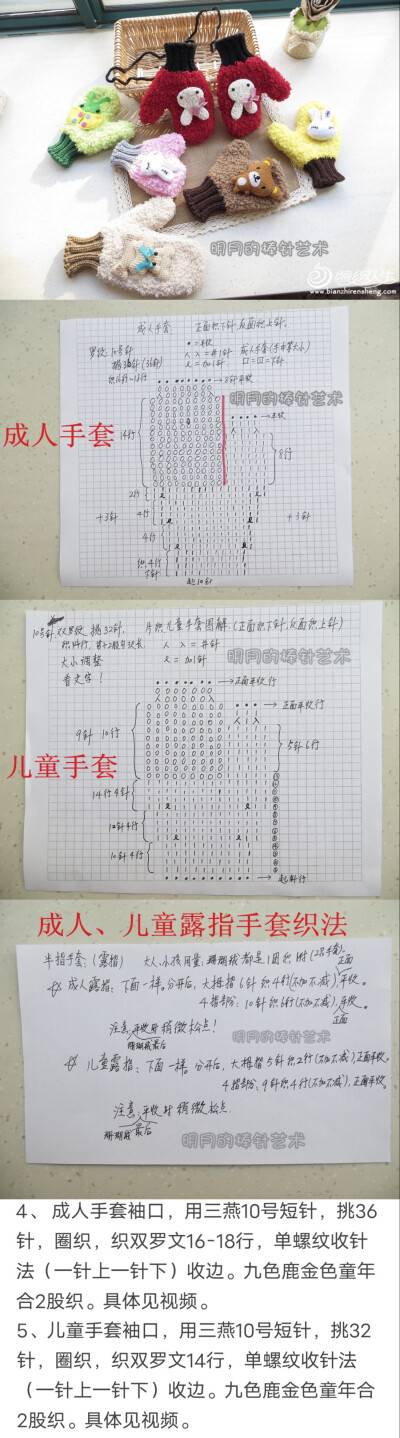 明月的棒针艺术
编织人生
www.bianzhirensheng.com
成人手套 正面织下针,反面织上针。
• = 平收
罗纹:10号针
人 入 = 并1针 成人手套(手中等大小)
挑36针(36针)
又 = 加1针 口=口=下针
织16行~18行
8针平收
明月的棒针艺术
平收
成人手套
14行
8行
2行
+3针 4行 +3针
4行
织4行
下针
起10针
10号针,双罗纹,挑32针,
片织儿童手套图解(正面织下针,反面织上针)
人 入 = 并针
大小调整
又 = 加1针
看文字!
明月的棒针艺术
正面平收行
正面平收行
9针 10行
5针6行
儿童手套
14针4行
12针4行
10针4行
起针行
成人、儿童露指手套织法
半指手套:(露指) 大人、小孩用量:珊瑚绒都是1团织1付(2只手套)。
正面
成人露指:下面一样。分开后,大拇指6针织4行(不加不减),平收。
4指部份:10针织6行(不加不减),平收。
正面
注意:平收时稍微松点!
珊瑚绒最后
明月的棒针艺术
儿童露指:下面一样。分开后,大拇指5针织2行(不加不减),正面平收。
4指部份:9针织4行(不加不减),正面平收。
注意:平收时稍微松点.
珊瑚绒最后
明月的棒针艺术
4、 成人手套袖口,用三燕10号短针,挑36
针,圈织,织双罗文16-18行,单螺纹收针
法(一针上一针下)收边。九色鹿金色童年
合2股织。具体见视频。
5、儿童手套袖口,用三燕10号短针,挑32
针,圈织,织双罗文14行,单螺纹收针法
(一针上一针下)收边。九色鹿金色童年合
2股织。具体见视频。